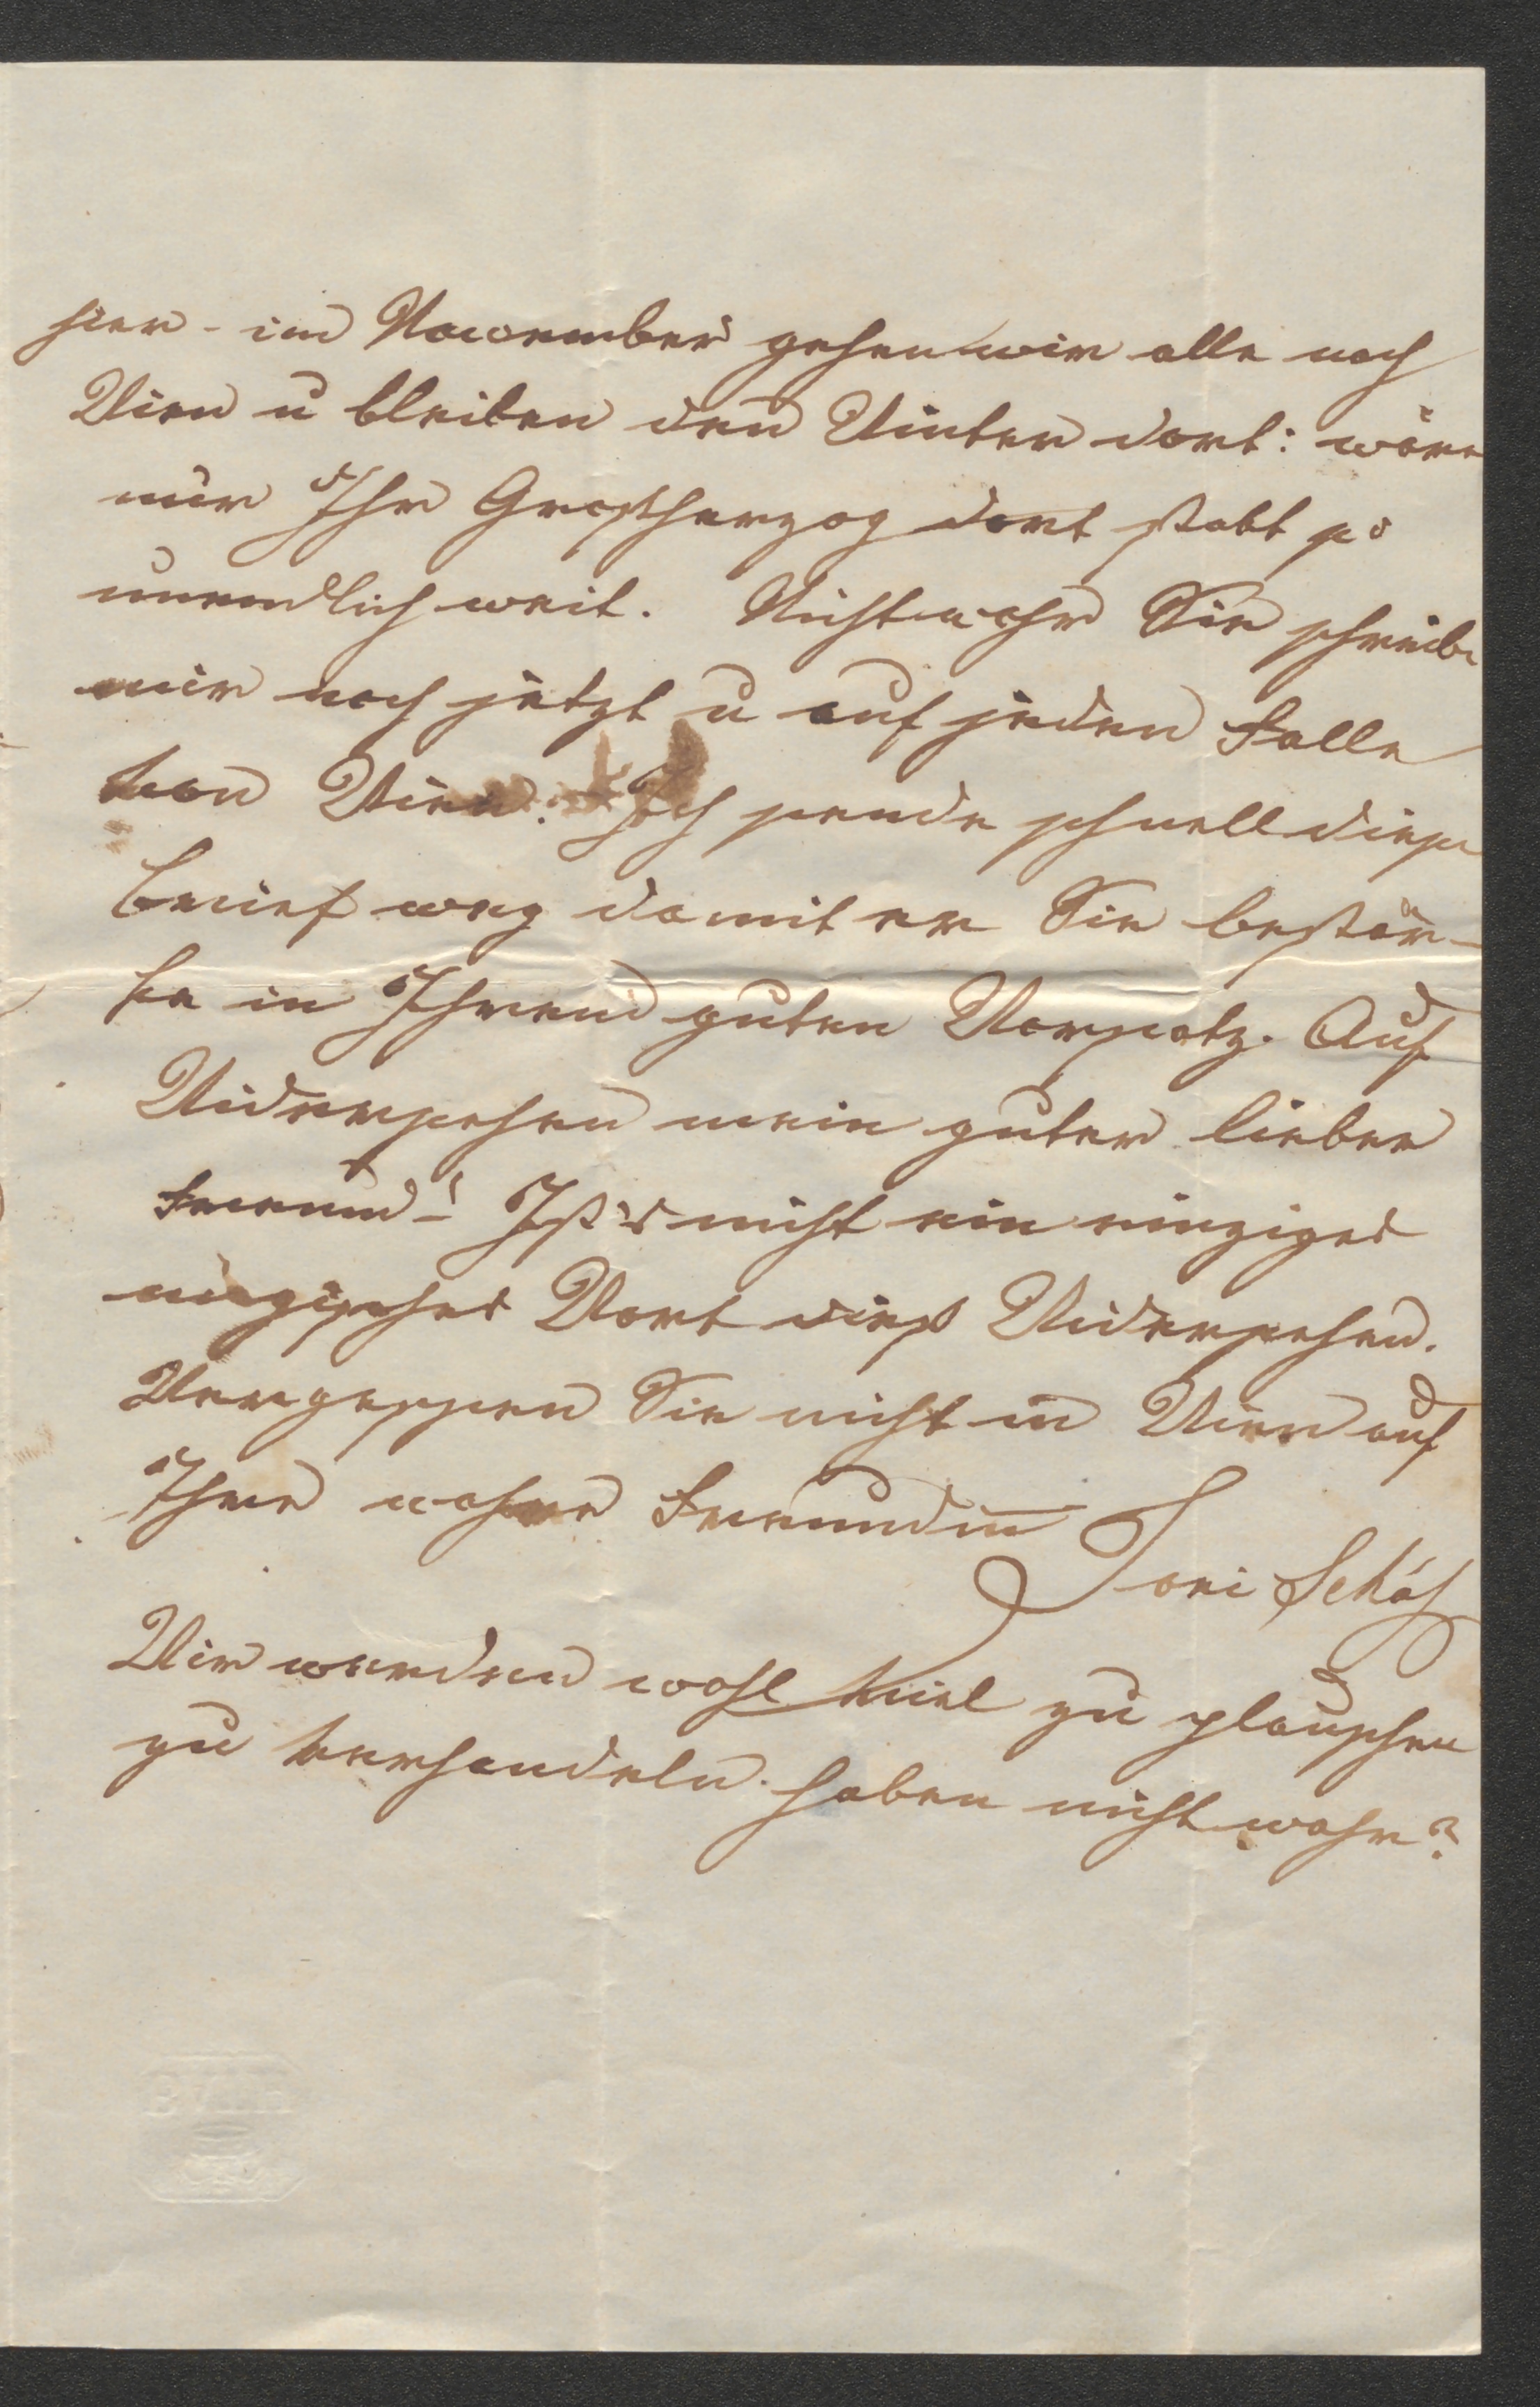 hier - im November gehen wir alle nach
Wien u bleiben den Winter dort: wäre
nur Ihr Grosherzog dort statt so
unendlich weit. Nicht wahr Sie schreibe
mir noch jetzt u auf jeden Falle
von Wien. Ich sende schnell diesen
Brief weg damit er Sie bestär-
ke in Ihrem guten Vorsatz. Auf
Widersehen mein guter lieber
Freund! Ist's nicht ein einziges
magisches Wort dieß Widersehen.
Vergessen Sie nicht in Wien auf
Ihre wahre Freundin
Toni
Wir werden wohl viel zu plauschen
zu verhandeln haben nicht wahr?
BATH